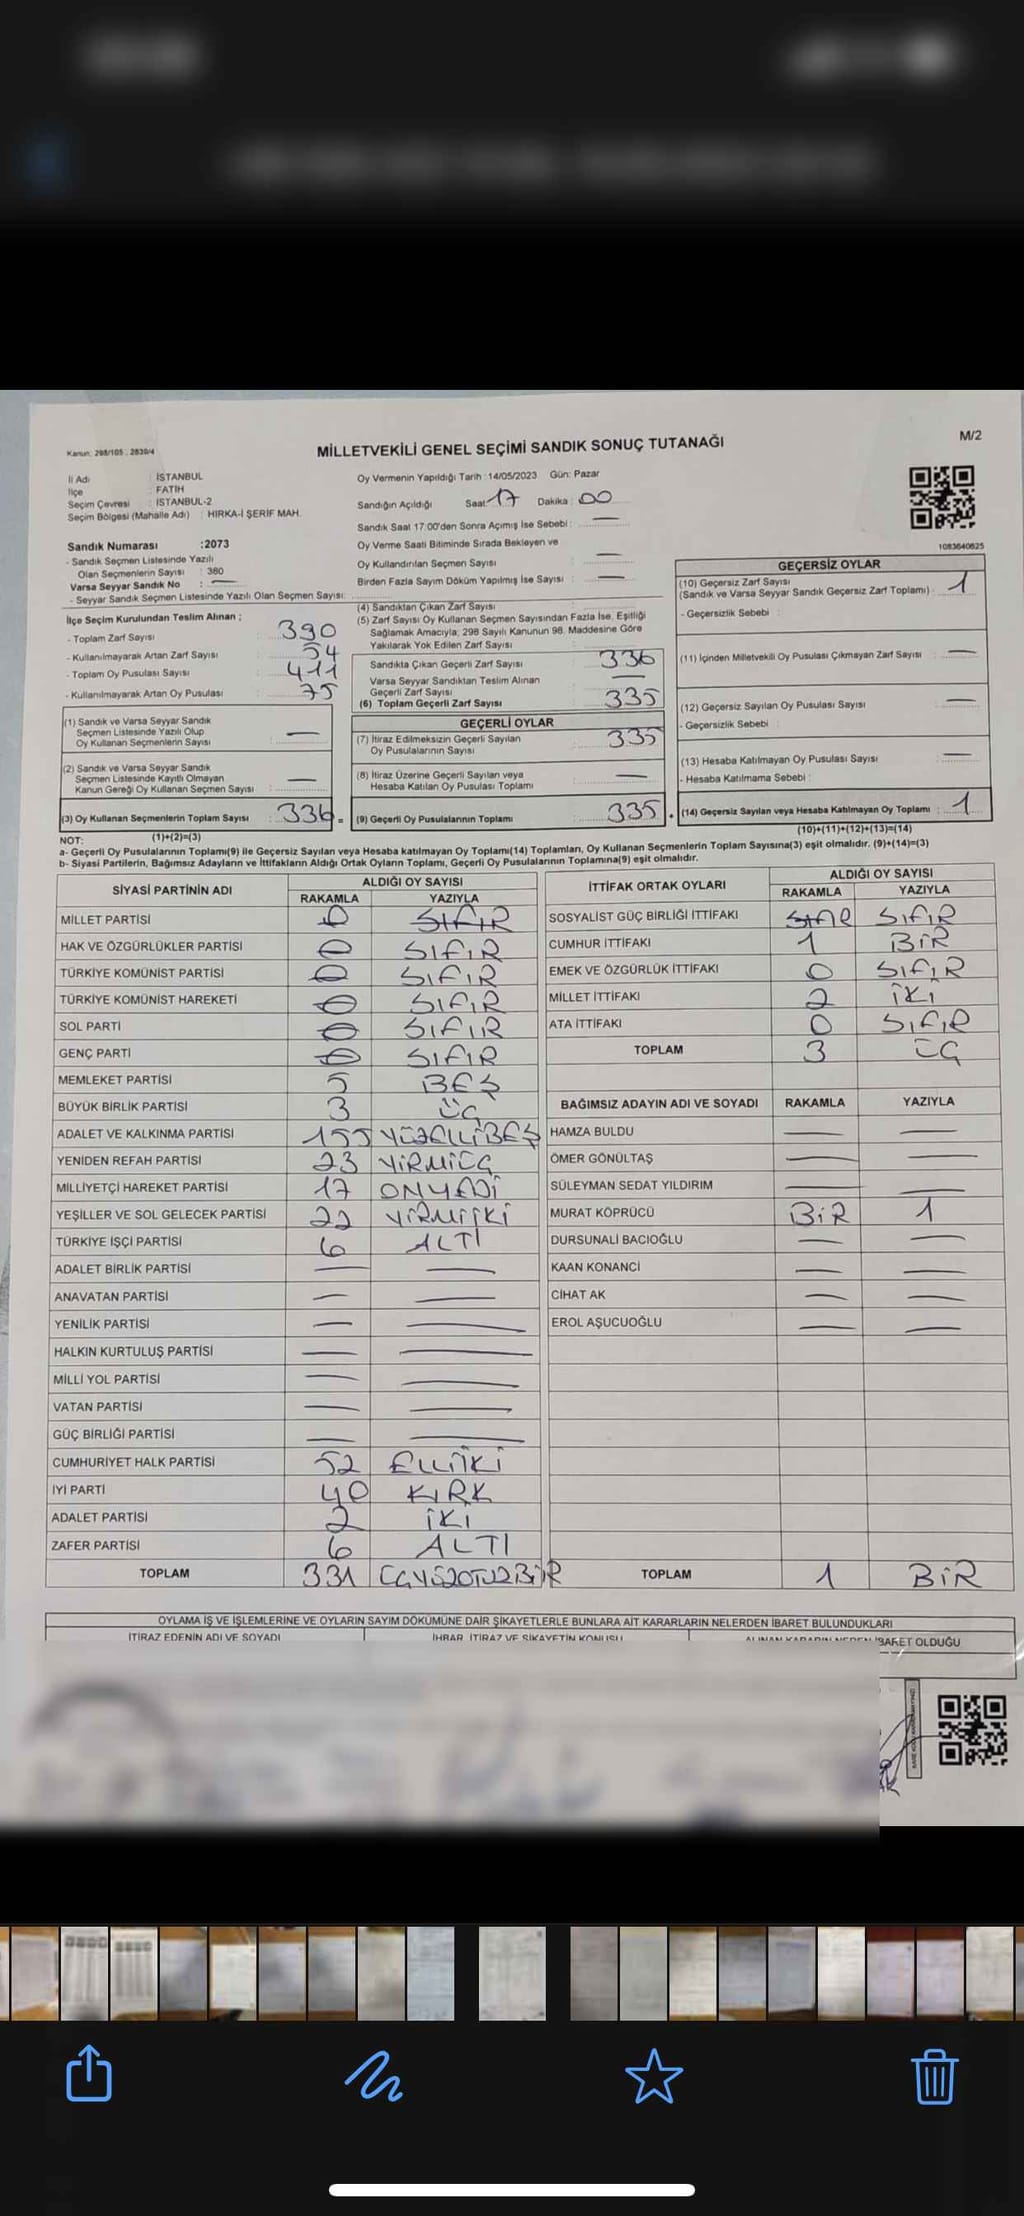 Kanun: 298/105 , 2839/4
MİLLETVEKİLİ GENEL SEÇİMİ SANDIK SONUÇ TUTANAĞI
M/2
İl Adı : İSTANBUL
İlçe : FATİH
Seçim Çevresi : İSTANBUL-2
Seçim Bölgesi (Mahalle Adı) : HIRKA-İ ŞERİF MAH.
Oy Vermenin Yapıldığı Tarih :14/05/2023 Gün: Pazar
Sandığın Açıldığı Saat: 17 Dakika : 00
Sandık Saat 17:00'den Sonra Açımış İse Sebebi : —
Sandık Numarası :2073
- Sandık Seçmen Listesinde Yazılı
Olan Seçmenlerin Sayısı : 380
Varsa Seyyar Sandık No : —
- Seyyar Sandık Seçmen Listesinde Yazılı Olan Seçmen Sayısı:
Oy Verme Saati Bitiminde Sırada Bekleyen ve
Oy Kullandırılan Seçmen Sayısı —
Birden Fazla Sayım Döküm Yapılmış İse Sayısı : —
1083640625
İlçe Seçim Kurulundan Teslim Alınan ;
- Toplam Zarf Sayısı : 390
- Kullanılmayarak Artan Zarf Sayısı : 54
- Toplam Oy Pusulası Sayısı : 411
- Kullanılmayarak Artan Oy Pusulası : 75
(1) Sandık ve Varsa Seyyar Sandık
Seçmen Listesinde Yazılı Olup
Oy Kullanan Seçmenlerin Sayısı : —
(2) Sandık ve Varsa Seyyar Sandık
Seçmen Listesinde Kayıtlı Olmayan
Kanun Gereği Oy Kullanan Seçmen Sayısı : —
(3) Oy Kullanan Seçmenlerin Toplam Sayısı : 336 =
(1)+(2)=(3)
(4) Sandıktan Çıkan Zarf Sayısı
(5) Zarf Sayısı Oy Kullanan Seçmen Sayısından Fazla İse, Eşitliği
Sağlamak Amacıyla; 298 Sayılı Kanunun 98. Maddesine Göre
Yakılarak Yok Edilen Zarf Sayısı
Sandıkta Çıkan Geçerli Zarf Sayısı 336
Varsa Seyyar Sandıktan Teslim Alınan
Geçerli Zarf Sayısı —
(6) Toplam Geçerli Zarf Sayısı 335
GEÇERLİ OYLAR
(7) İtiraz Edilmeksizin Geçerli Sayılan
Oy Pusulalarının Sayısı : 335
(8) İtiraz Üzerine Geçerli Sayılan veya
Hesaba Katılan Oy Pusulası Toplamı : —
(9) Geçerli Oy Pusulalarının Toplamı : 335 +
GEÇERSİZ OYLAR
(10) Geçersiz Zarf Sayısı
(Sandık ve Varsa Seyyar Sandık Geçersiz Zarf Toplamı) : 1
- Geçersizlik Sebebi :
(11) İçinden Milletvekili Oy Pusulası Çıkmayan Zarf Sayısı : —
(12) Geçersiz Sayılan Oy Pusulası Sayısı : —
- Geçersizlik Sebebi :
(13) Hesaba Katılmayan Oy Pusulası Sayısı : —
- Hesaba Katılmama Sebebi :
(14) Geçersiz Sayılan veya Hesaba Katılmayan Oy Toplamı : 1
(10)+(11)+(12)+(13)=(14)
NOT:
a- Geçerli Oy Pusulalarının Toplamı(9) ile Geçersiz Sayılan veya Hesaba katılmayan Oy Toplamı(14) Toplamları, Oy Kullanan Seçmenlerin Toplam Sayısına(3) eşit olmalıdır. (9)+(14)=(3)
b- Siyasi Partilerin, Bağımsız Adayların ve İttifakların Aldığı Ortak Oyların Toplamı, Geçerli Oy Pusulalarının Toplamına(9) eşit olmalıdır.
SİYASİ PARTİNİN ADI ALDIĞI OY SAYISI
RAKAMLA YAZIYLA
MİLLET PARTİSİ 0 SIFIR
HAK VE ÖZGÜRLÜKLER PARTİSİ 0 SIFIR
TÜRKİYE KOMÜNİST PARTİSİ 0 SIFIR
TÜRKİYE KOMÜNİST HAREKETİ 0 SIFIR
SOL PARTİ 0 SIFIR
GENÇ PARTİ 0 SIFIR
MEMLEKET PARTİSİ 5 BEŞ
BÜYÜK BİRLİK PARTİSİ 3 ÜÇ
ADALET VE KALKINMA PARTİSİ 155 YÜZELLİBEŞ
YENİDEN REFAH PARTİSİ 23 YİRMİÜÇ
MİLLİYETÇİ HAREKET PARTİSİ 17 ONYEDİ
YEŞİLLER VE SOL GELECEK PARTİSİ 22 YİRMİİKİ
TÜRKİYE İŞÇİ PARTİSİ 6 ALTI
ADALET BİRLİK PARTİSİ — —
ANAVATAN PARTİSİ — —
YENİLİK PARTİSİ — —
HALKIN KURTULUŞ PARTİSİ — —
MİLLİ YOL PARTİSİ — —
VATAN PARTİSİ — —
GÜÇ BİRLİĞİ PARTİSİ — —
CUMHURİYET HALK PARTİSİ 52 ELLİİKİ
İYİ PARTİ 40 KIRK
ADALET PARTİSİ 2 İKİ
ZAFER PARTİSİ 6 ALTI
TOPLAM 331 ÜÇYÜZOTUZBİR
İTTİFAK ORTAK OYLARI ALDIĞI OY SAYISI
RAKAMLA YAZIYLA
SOSYALİST GÜÇ BİRLİĞİ İTTİFAKI SIFIR SIFIR
CUMHUR İTTİFAKI 1 BİR
EMEK VE ÖZGÜRLÜK İTTİFAKI 0 SIFIR
MİLLET İTTİFAKI 2 İKİ
ATA İTTİFAKI 0 SIFIR
TOPLAM 3 ÜÇ
BAĞIMSIZ ADAYIN ADI VE SOYADI RAKAMLA YAZIYLA
HAMZA BULDU — —
ÖMER GÖNÜLTAŞ — —
SÜLEYMAN SEDAT YILDIRIM — —
MURAT KÖPRÜCÜ BİR 1
DURSUNALİ BACIOĞLU — —
KAAN KONANCİ — —
CİHAT AK — —
EROL AŞUCUOĞLU — —
TOPLAM 1 BİR
OYLAMA İŞ VE İŞLEMLERİNE VE OYLARIN SAYIM DÖKÜMÜNE DAİR ŞİKAYETLERLE BUNLARA AİT KARARLARIN NELERDEN İBARET BULUNDUKLARI
İTİRAZ EDENİN ADI VE SOYADI İHBAR, İTİRAZ VE ŞİKAYETİN KONUSU ALINAN KARARIN NEDEN İBARET OLDUĞU